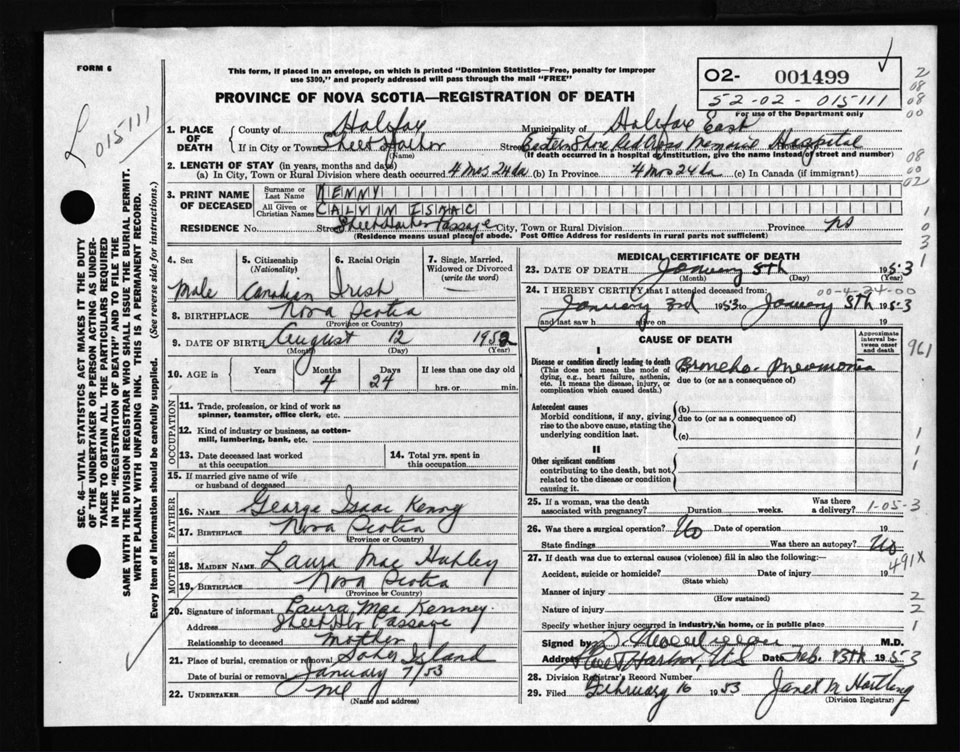 FORM 6
This form, if placed in an envelope, on which is printed "Dominion Statistics—Free, penalty for improper
use $300," and properly addressed will pass through the mail "FREE"
PROVINCE OF NOVA SCOTIA—REGISTRATION OF DEATH
O2- 001499
52-02-015111
For use of the Department only
L 015111
1. PLACE OF DEATH
County of Halifax Municipality of Halifax East
If in City or Town Sheet Harbor Street Eastern Shore Red Cross Memorial Hospital
(Name) (If death occurred in a hospital or institution, give the name instead of street and number)
2. LENGTH OF STAY (in years, months and days)
(a) In City, Town or Rural Division where death occurred 4 mos 24 da (b) In Province 4 mos 24 da (c) In Canada (if immigrant)
3. PRINT NAME OF DECEASED
Surname or Last Name KENNY
All Given or Christian Names CALVIN ISAAC
RESIDENCE No. Street Sheet Harbor Passage City, Town or Rural Division Province NS
(Residence means usual place of abode. Post Office Address for residents in rural parts not sufficient)
4. Sex
Male
5. Citizenship (Nationality)
Canadian
6. Racial Origin
Irish
7. Single, Married, Widowed or Divorced (write the word)
8. BIRTHPLACE Nova Scotia
(Province or Country)
9. DATE OF BIRTH August 12 1952
(Month) (Day) (Year)
10. AGE in Years Months 4 Days 24 If less than one day old hrs. or min.
OCCUPATION
11. Trade, profession, or kind of work as spinner, teamster, office clerk, etc.
12. Kind of industry or business, as cotton-mill, lumbering, bank, etc.
13. Date deceased last worked at this occupation
14. Total yrs. spent in this occupation
15. If married give name of wife or husband of deceased
FATHER
16. NAME George Isaac Kenny
17. BIRTHPLACE Nova Scotia
(Province or Country)
MOTHER
18. MAIDEN NAME Laura Mae Hubley
19. BIRTHPLACE Nova Scotia
(Province or Country)
20. Signature of informant Laura Mae Kenney.
Address Sheet Hbr Passage
Relationship to deceased Mother
21. Place of burial, cremation or removal Sober Island
Date of burial or removal January 7/53
22. UNDERTAKER
(Name and address)
MEDICAL CERTIFICATE OF DEATH
23. DATE OF DEATH January 5th 1953
(Month) (Day) (Year)
24. I HEREBY CERTIFY that I attended deceased from:
00-4-24-00
January 3rd 1953 to January 5th 1953
and last saw h alive on 19
CAUSE OF DEATH
Approximate interval between onset and death
I
Disease or condition directly leading to death
(This does not mean the mode of dying, e.g., heart failure, asthenia, etc. It means the disease, injury, or complication which caused death.)
Broncho Pneumonia
due to (or as a consequence of)
Antecedent causes
Morbid conditions, if any, giving rise to the above cause, stating the underlying condition last.
(b)
due to (or as a consequence of)
(c)
II
Other significant conditions
contributing to the death, but not related to the disease or condition causing it.
25. If a woman, was the death associated with pregnancy? Duration weeks. Was there a delivery?
1-05-3
26. Was there a surgical operation? No Date of operation 19
State findings Was there an autopsy? No
27. If death was due to external causes (violence) fill in also the following:—
491X
Accident, suicide or homicide? Date of injury 19
(State which)
Manner of injury
(How sustained)
Nature of injury
Specify whether injury occurred in industry, in home, or in public place
Signed by M.D.
Address Harbor, N.S Date Feb. 13th 1953
28. Division Registrar's Record Number
29. Filed February 16 1953 Janet M Hartling
(Division Registrar)
SEC. 46—VITAL STATISTICS ACT MAKES IT THE DUTY
OF THE UNDERTAKER OR PERSON ACTING AS UNDER-
TAKER TO OBTAIN ALL THE PARTICULARS REQUIRED
IN THE "REGISTRATION OF DEATH" AND TO FILE THE
SAME WITH THE DIVISION REGISTRAR WHO SHALL ISSUE THE BURIAL PERMIT.
WRITE PLAINLY WITH UNFADING INK. THIS IS A PERMANENT RECORD.
Every item of information should be carefully supplied. (See reverse side for instructions.)
2
08
08
00
08
00
02
1
0
3
1
961
1
1
1
2
2
1